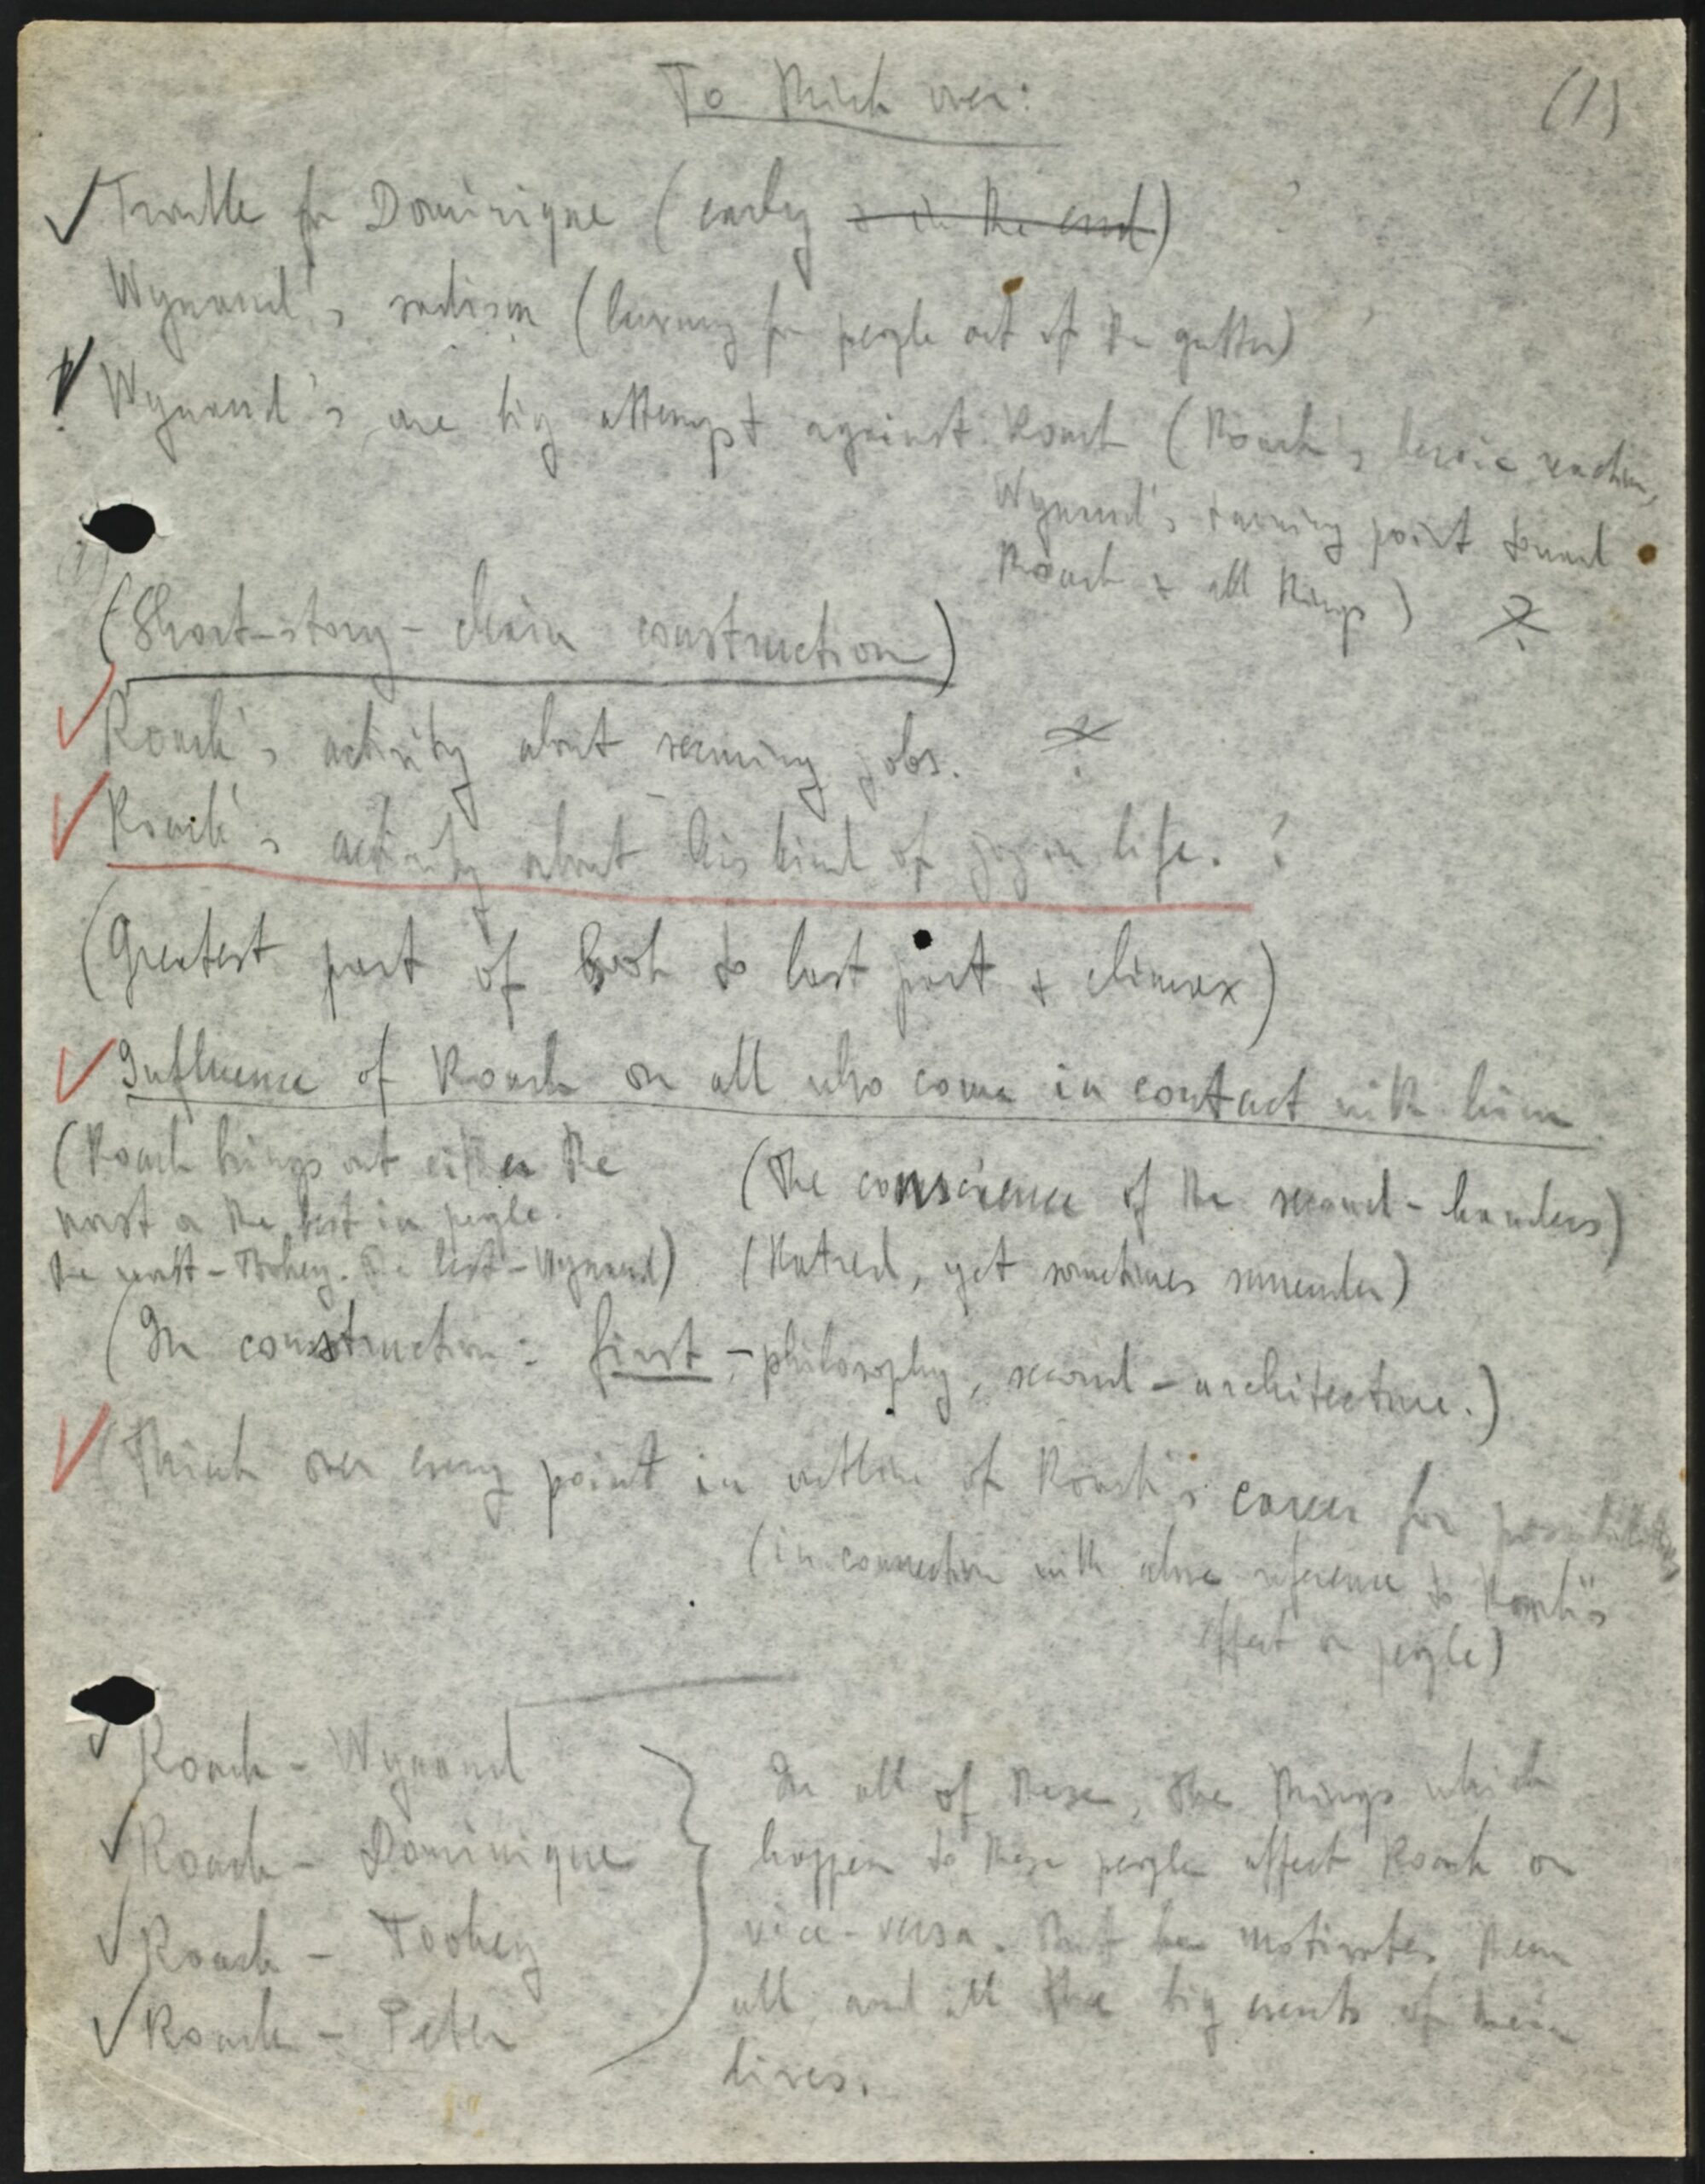 To think over:
(1)
Trouble for Dominique (early & in the end) ?
Wynand's sadism (luxury for people out of the gutter) ?
Wynand's one big attempt against Roark (Roark's heroic reaction,
Wynand's turning point toward
Roark & all things) ?
(Short-story-chain construction)
Roark's activity about securing jobs. ?
Roark's activity about his kind of joy in life. ?
(Greatest part of book to last part & climax)
Influence of Roark on all who come in contact with him
(Roark brings out either the
worst or the best in people.
The worst – Toohey. The best – Wynand)
(The conscience of the second-handers)
(Hatred, yet sometimes surrender)
(In construction: first – philosophy, second – architecture.)
Think over every point in outline of Roark's career for possibilities
(in connection with above reference to Roark's
effect on people)
Roark – Wynand
Roark – Dominique
Roark – Toohey
Roark – Peter
In all of these, the things which
happen to these people affect Roark or
vice-versa. But he motivates them
all and all the big events of their
lives.